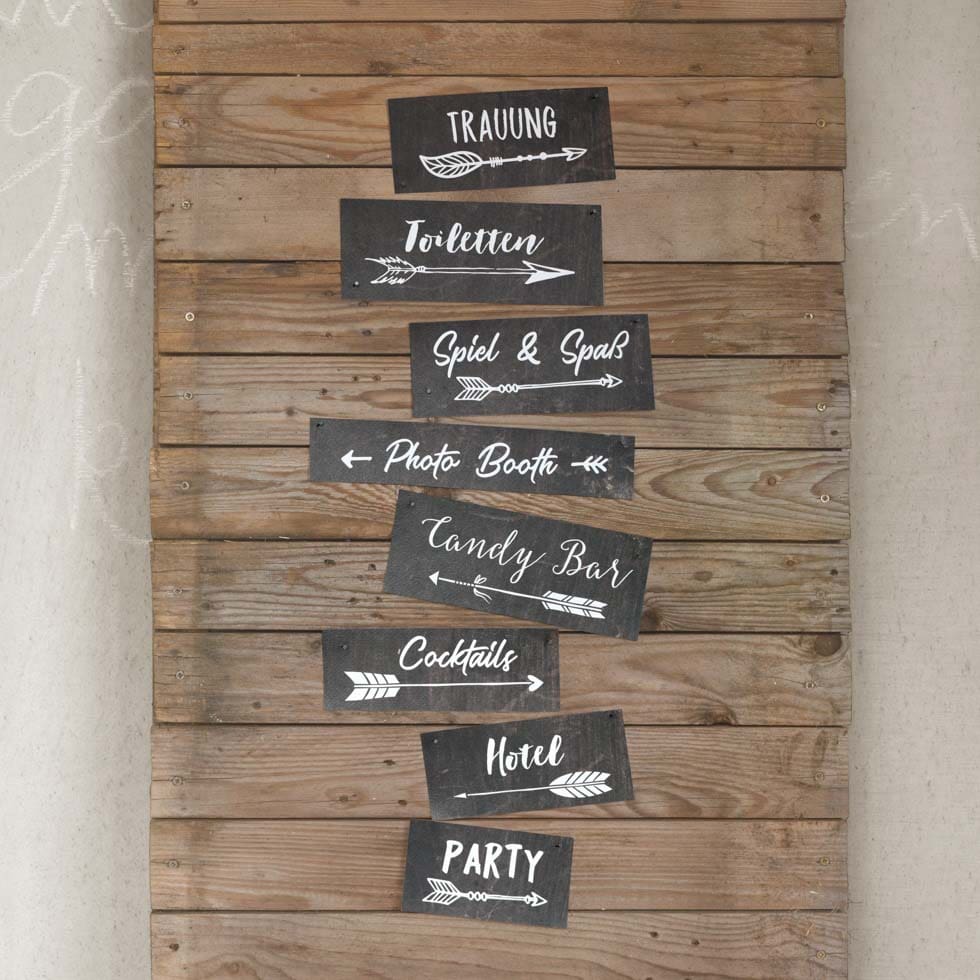 TRAUUNG
Toiletten
Spiel & Spaß
Photo Booth
Candy Bar
Cocktails
Hotel
PARTY